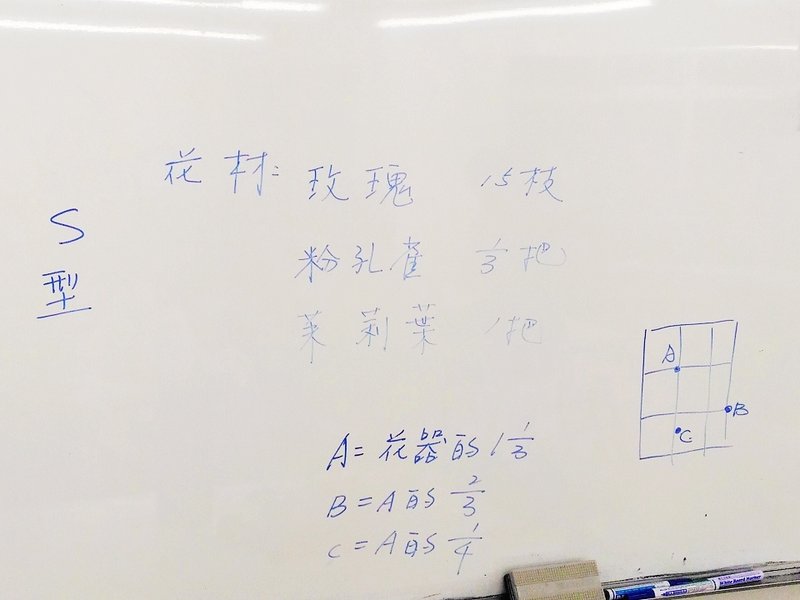 S
型
花材: 玫瑰 15枝
粉孔雀 1/3把
茉莉葉 1把
A
B
C
A=花器的1 1/3
B=A的 2/3
C=A的 1/4
White Board Marker